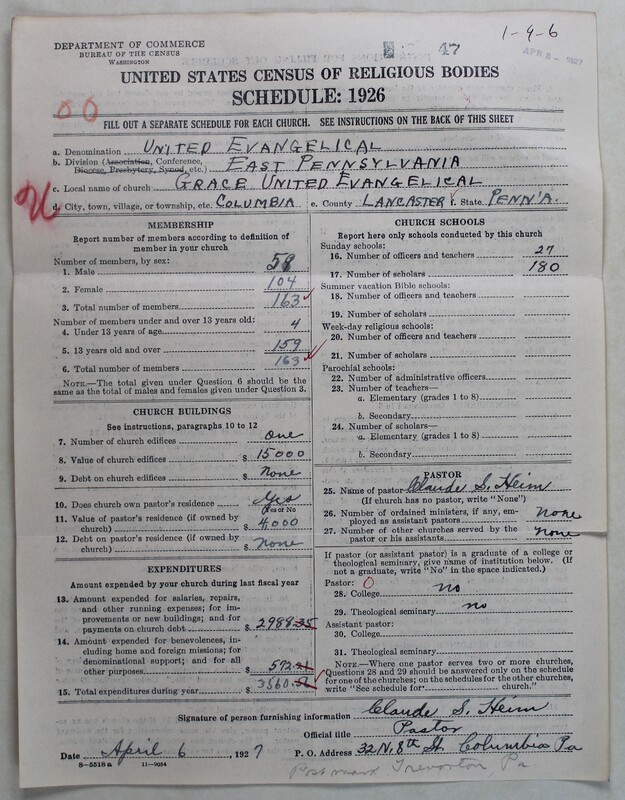 1-9-6
DEPARTMENT OF COMMERCE
BUREAU OF THE CENSUS
WASHINGTON
47
APR 8 - 1927
UNITED STATES CENSUS OF RELIGIOUS BODIES
SCHEDULE: 1926
00
FILL OUT A SEPARATE SCHEDULE FOR EACH CHURCH. SEE INSTRUCTIONS ON THE BACK OF THIS SHEET
a. Denomination UNITED EVANGELICAL
b. Division (Association, Conference, Diocese, Presbytery, Synod, etc.) EAST PENNSYLVANIA
c. Local name of church GRACE UNITED EVANGELICAL
d. City, town, village, or township, etc. COLUMBIA e. County LANCASTER f. State PENN'A.
MEMBERSHIP
Report number of members according to definition of
member in your church
Number of members, by sex:
1. Male 58
2. Female 104
3. Total number of members 163
Number of members under and over 13 years old:
4. Under 13 years of age 4
5. 13 years old and over 159
6. Total number of members 163
NOTE.—The total given under Question 6 should be
same as the total of males and females given under Question 3.
CHURCH BUILDINGS
See instructions, paragraphs 10 to 12
7. Number of church edifices One
8. Value of church edifices $ 15000
9. Debt on church edifices $ None
10. Does church own pastor's residence? Yes
(Yes or No)
11. Value of pastor's residence (if owned by
church) $ 4,000
12. Debt on pastor's residence (if owned by
church) $ None
EXPENDITURES
Amount expended by your church during last fiscal year
13. Amount expended for salaries, repairs,
and other running expenses; for im-
provements or new buildings; and for
payments on church debt $ 2988.35
14. Amount expended for benevolences, in-
cluding home and foreign missions; for
denominational support; and for all
other purposes $ 572.21
15. Total expenditures during year $ 3560.56
CHURCH SCHOOLS
Report here only schools conducted by this church
Sunday schools:
16. Number of officers and teachers 27
17. Number of scholars 180
Summer vacation Bible schools:
18. Number of officers and teachers
19. Number of scholars
Week-day religious schools:
20. Number of officers and teachers
21. Number of scholars
Parochial schools:
22. Number of administrative officers
23. Number of teachers—
a. Elementary (grades 1 to 8)
b. Secondary
24. Number of scholars—
a. Elementary (grades 1 to 8)
b. Secondary
PASTOR
25. Name of pastor Claude S. Heim
(If church has no pastor, write "None")
26. Number of ordained ministers, if any, em-
ployed as assistant pastors none
27. Number of other churches served by the
pastor or his assistants none
If pastor (or assistant pastor) is a graduate of a college or
theological seminary, give name of institution below. (If
not a graduate, write "No" in the space indicated.)
Pastor: 0
28. College no
29. Theological seminary no
Assistant pastor:
30. College
31. Theological seminary
NOTE.—Where one pastor serves two or more churches,
Questions 28 and 29 should be answered only on the schedule
for one of the churches; on the schedules for the other churches,
write "See schedule for church."
Signature of person furnishing information Claude S. Heim
Official title Pastor
Date April 6 1927 P. O. Address 32 N. 8th St. Columbia Pa
8—5518 a 11—9054
Postmark Trevorton, Pa